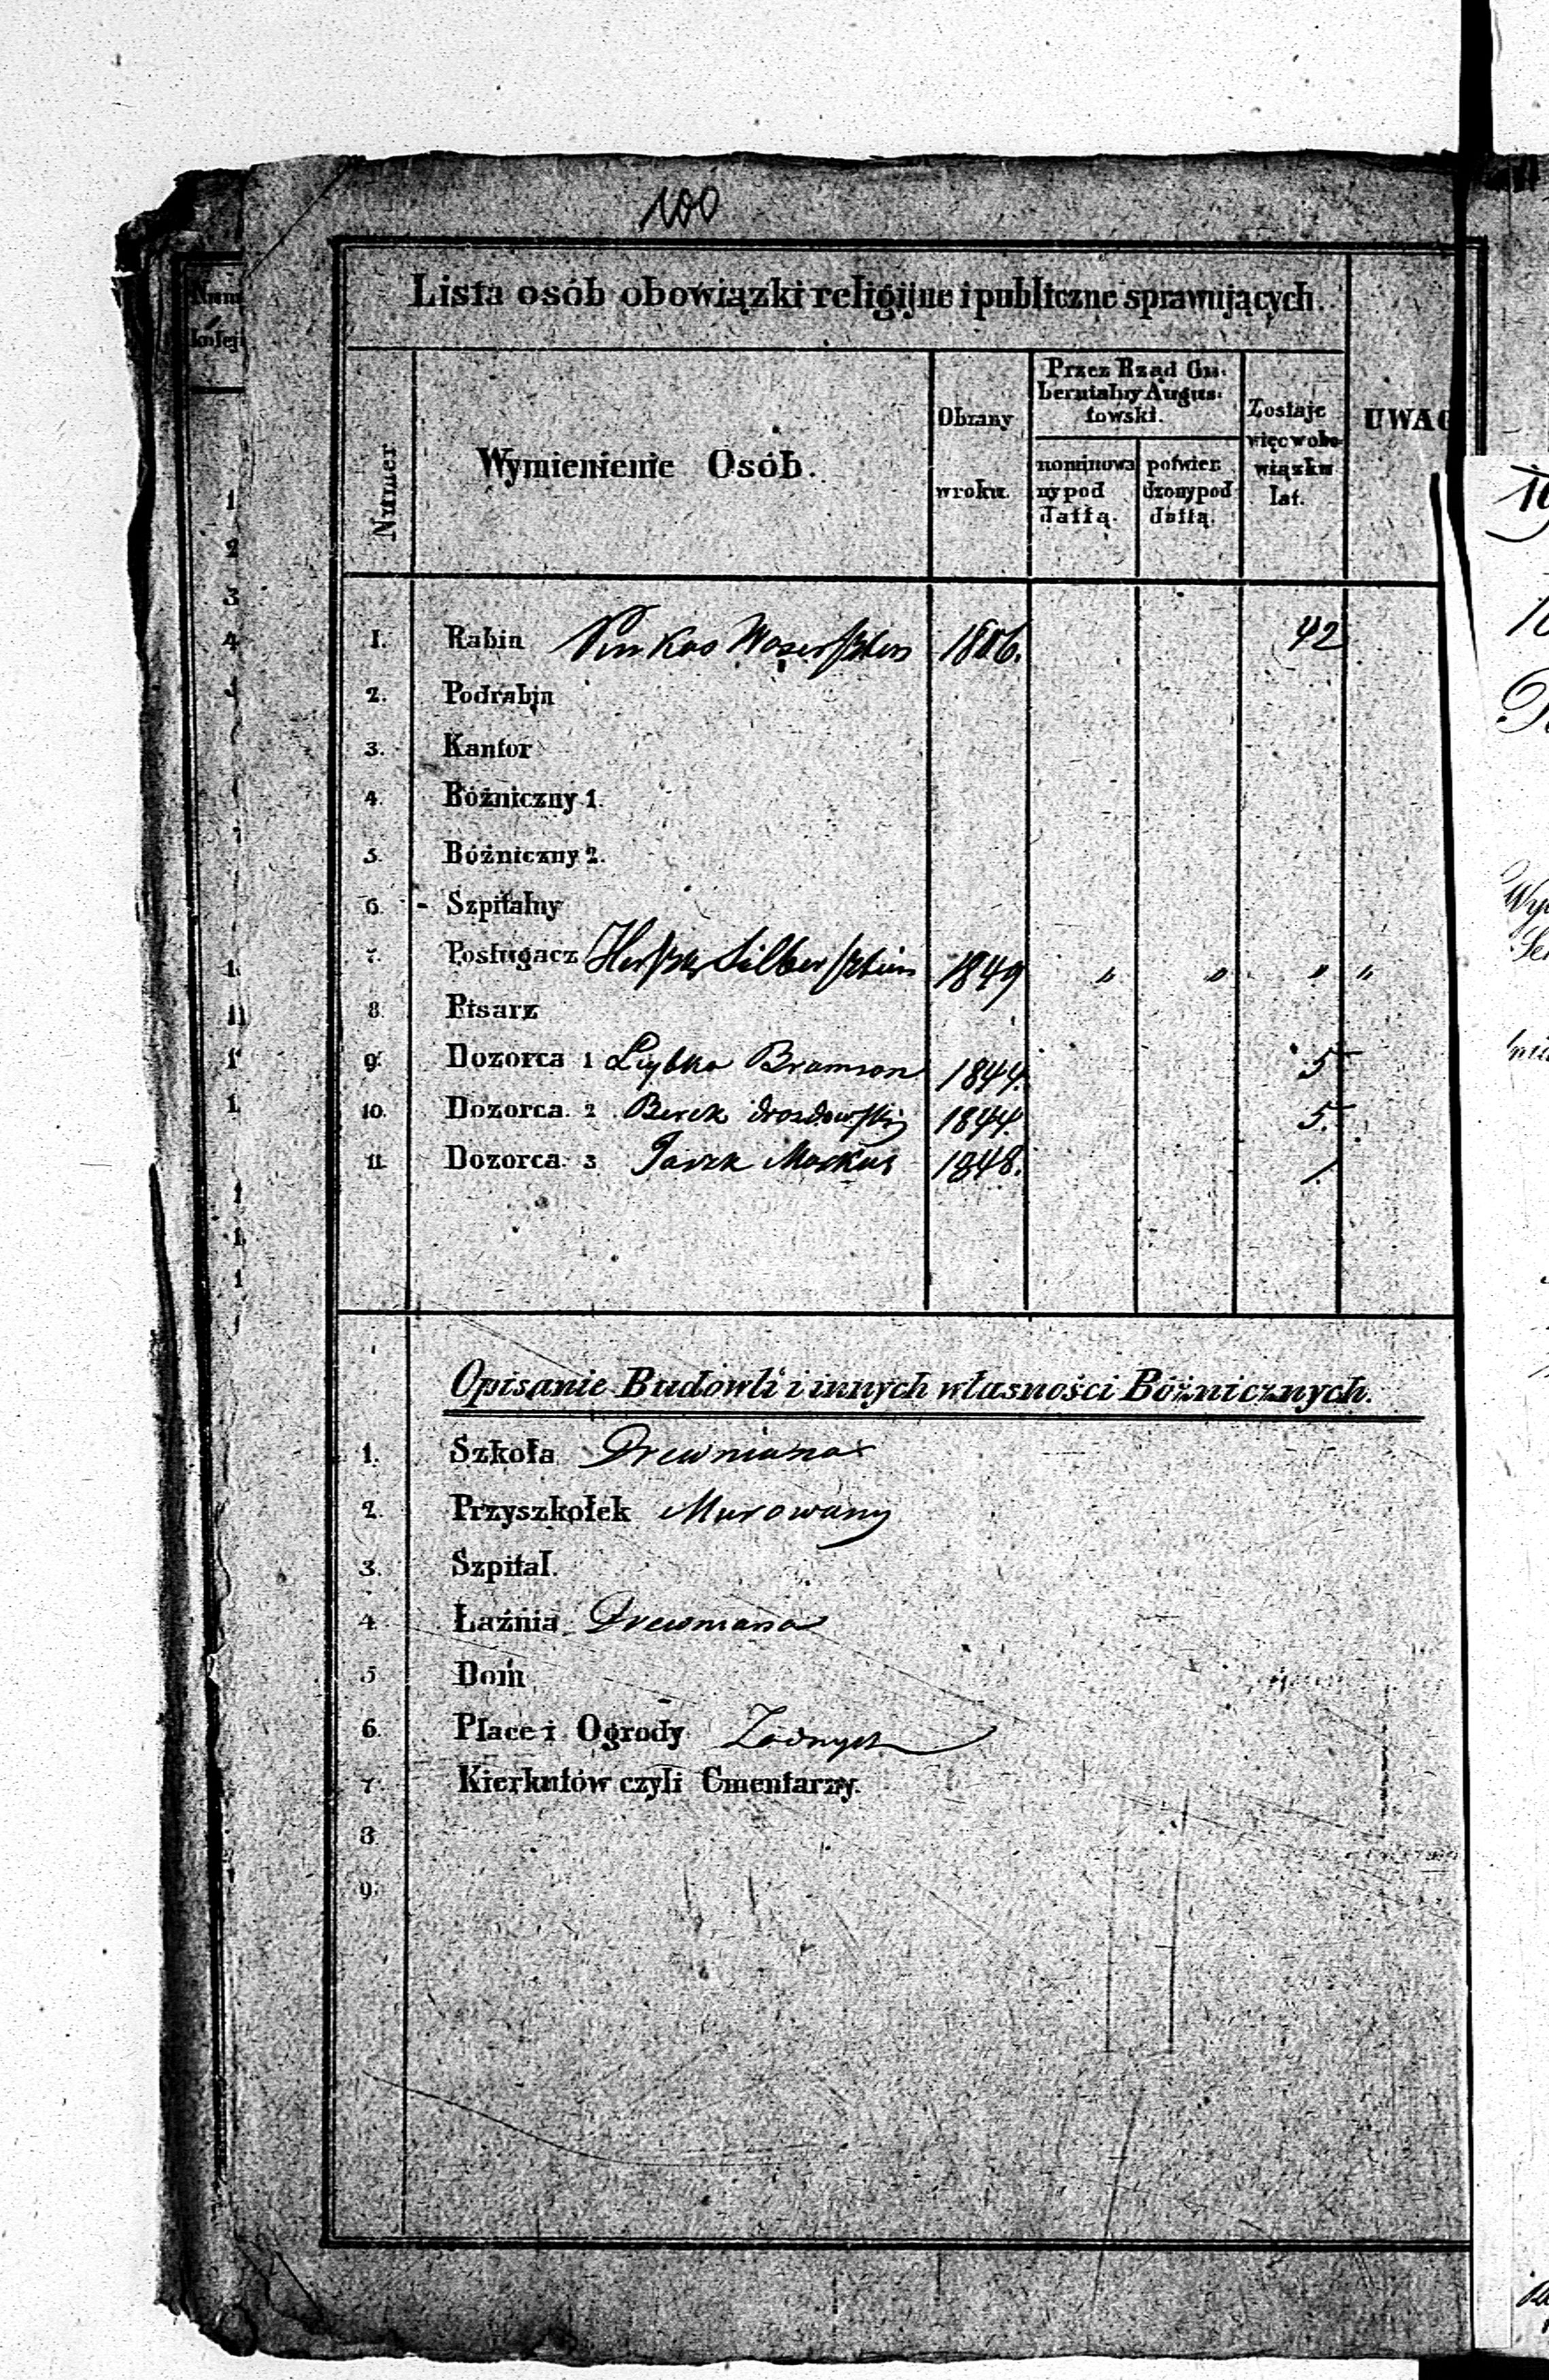 100
Lista osób obowiązki religijne i publiczne sprawujących.
Numer
Wymienienie Osób.
Obrany w roku.
Przez Rząd Gu-
bernialny Augus-
towski.
nominowa
ny pod
dattą.
potwier
dzony pod
dattą.
Zostaje
więc w obo-
wiązku
lat.
UWAG
1. Rabin Pinkas Wasersztein 1806. 42
2. Podrabin
3. Kantor
4. Bóżniczny 1.
5. Bóżniczny 2.
6. Szpitalny
7. Posługacz Herszk Silbersztein 1849 " " " "
8. Pisarz
9. Dozorca 1 Leybko Bramson 1844. 5
10. Dozorca 2 Berek Drozdowski 1844. 5.
11. Dozorca 3 Markus 1848. 1
Opisanie Budowli i innych własności Bóżnicznych.
1. Szkoła Drewniana
2. Przyszkołek Murowany
3. Szpital.
4. Łaźnia Drewniana
5 Dom
6. Place i Ogrody Żadnych
7. Kierkutów czyli Cmentarzy.
8
9.